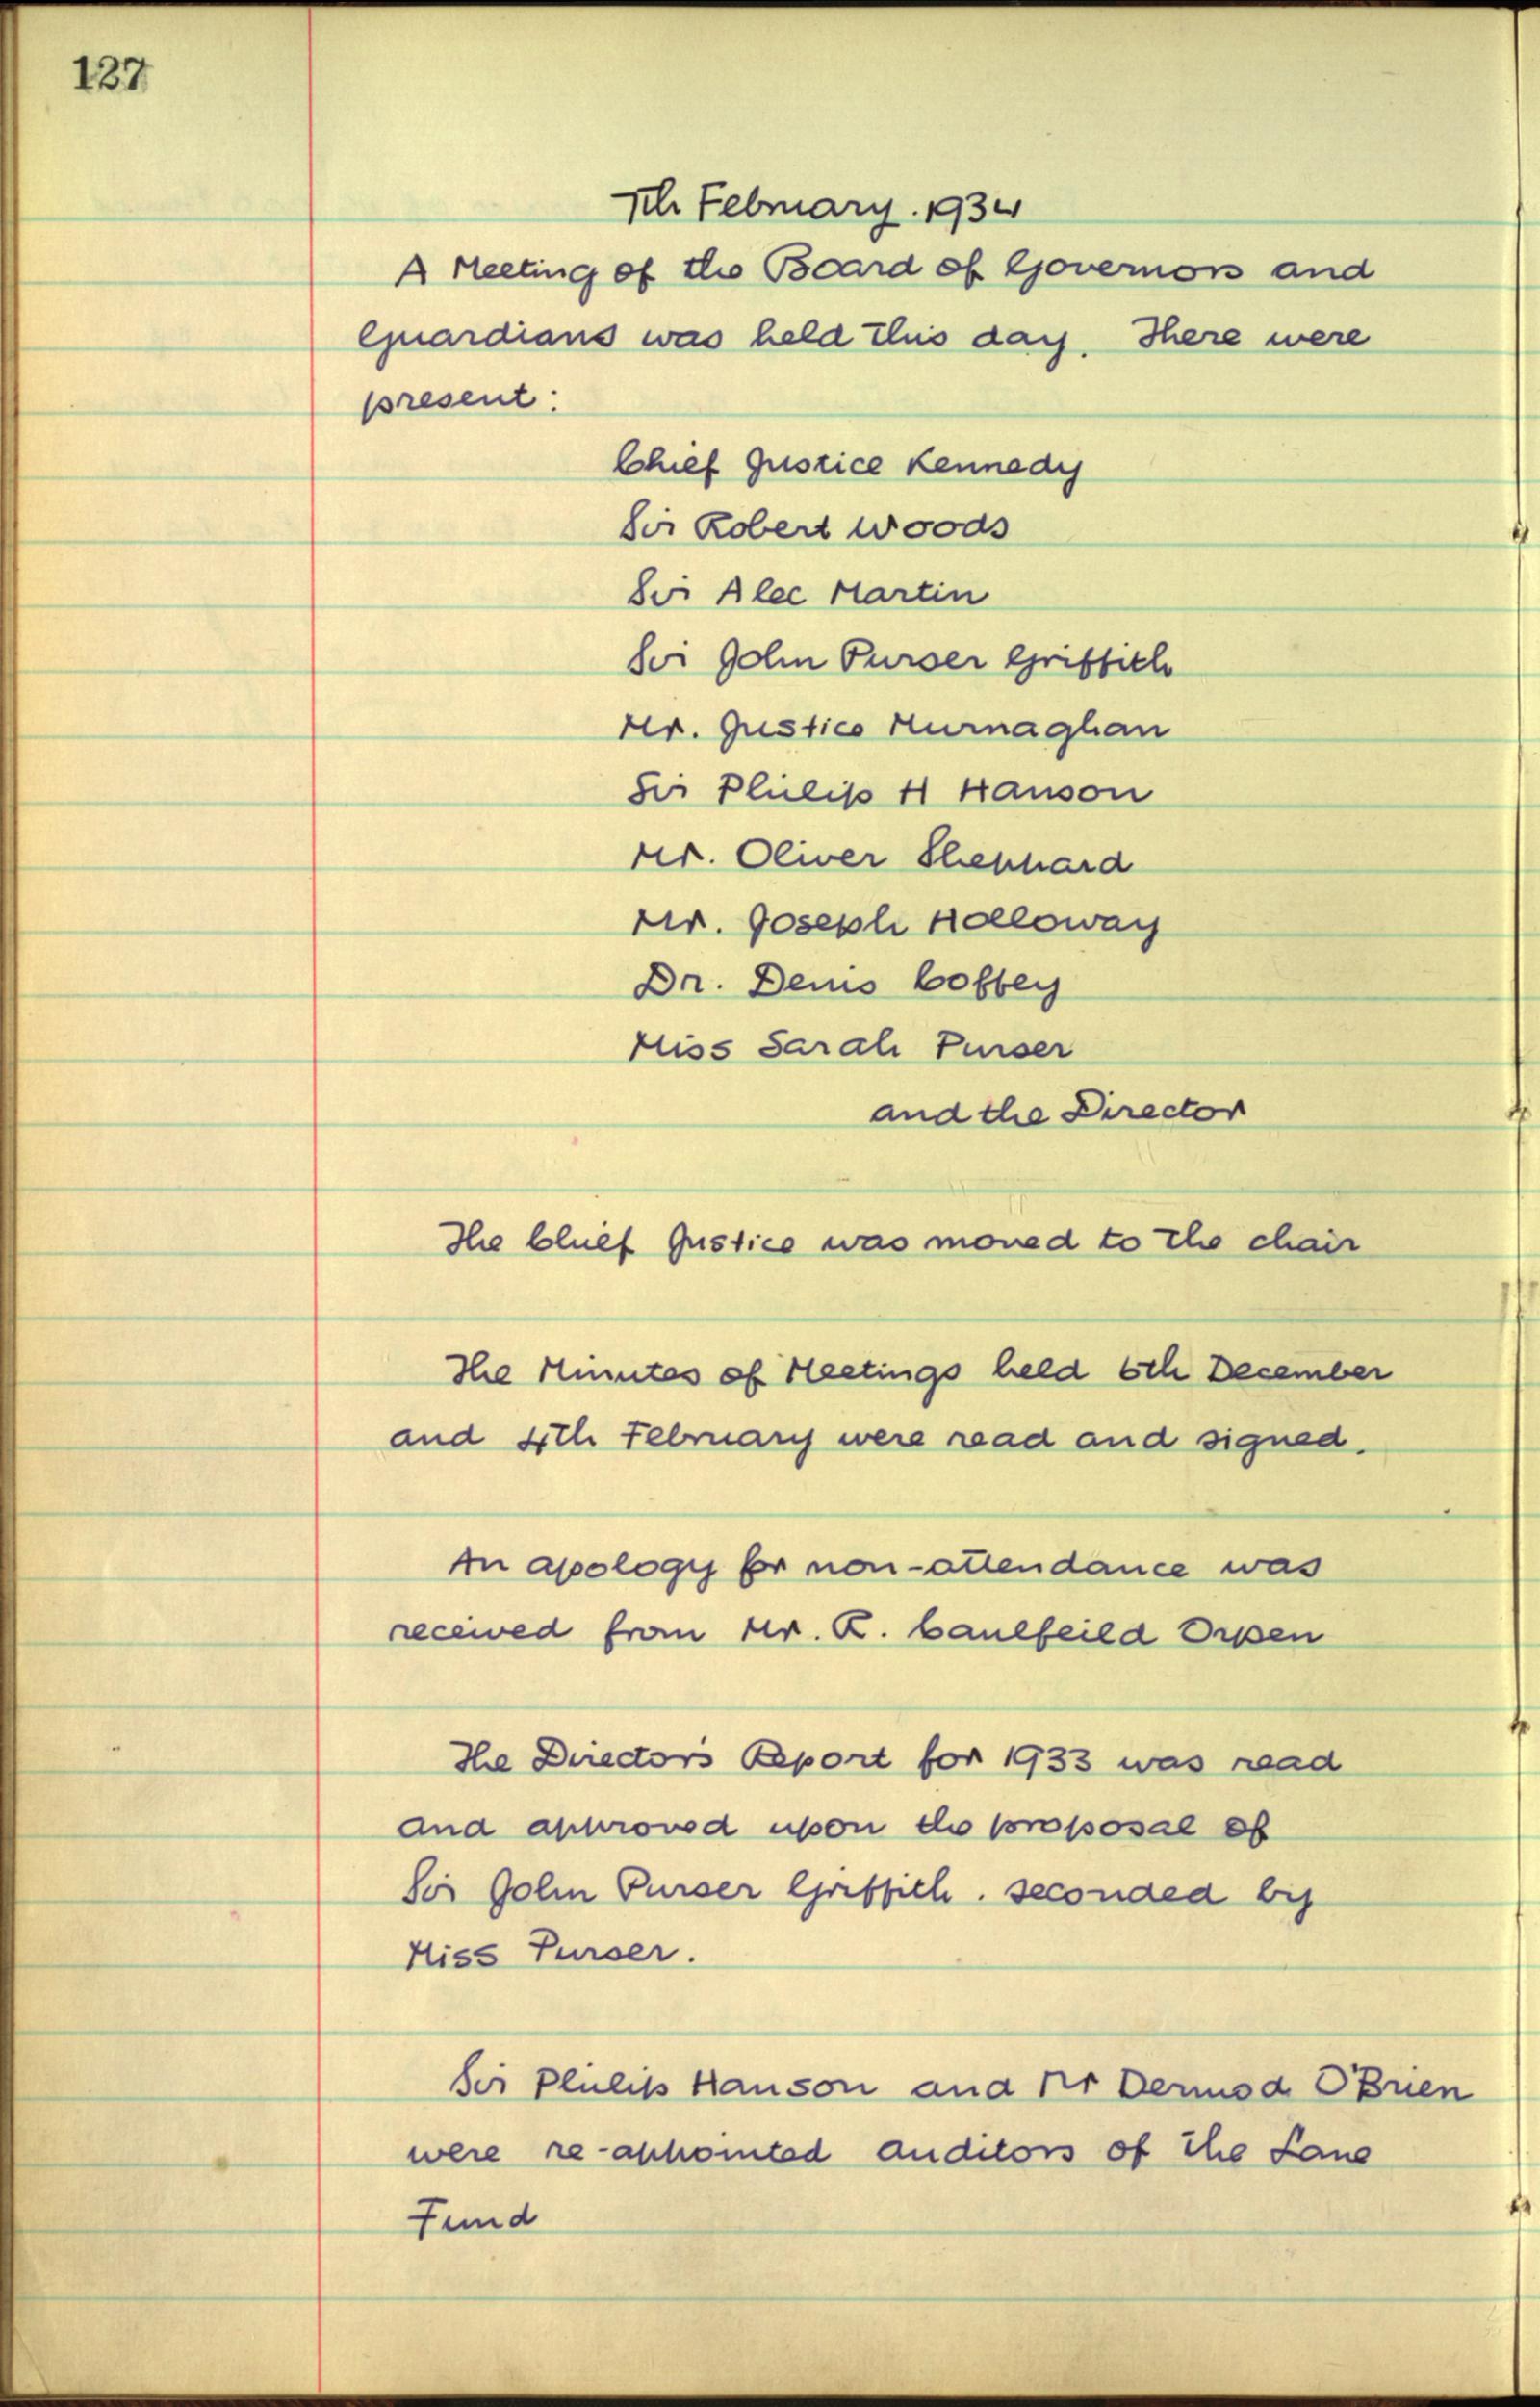 127
7th February. 1934
A Meeting of the Board of Governors and
Guardians was held this day. There were
present:
Chief Justice Kennedy
Sir Robert Woods
Sir Alec Martin
Sir John Purser Griffith
Mr. Justice Murnaghan
Sir Philip H Hanson
Mr. Oliver Sheppard
Mr. Joseph Holloway
Dr. Denis Coffey
Miss Sarah Purser
and the Director
The Chief Justice was moved to the chair
The Minutes of Meetings held 6th December
and 4th February were read and signed.
An apology for non-attendance was
received from Mr. R. Caulfeild Orpen
The Directors Report for 1933 was read
and approved upon the proposal of
Sir John Purser Griffith. seconded by
Miss Purser.
Sir Philip Hanson and Mr Dermod O'Brien
were re-appointed auditors of the Lane
Fund